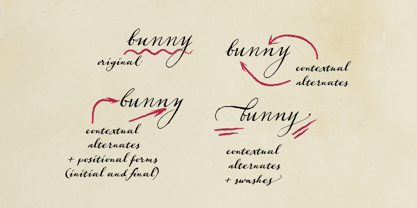 bunny
original
bunny
contextual
alternates
bunny
contextual
alternates
+ positional forms
(initial and final)
bunny
contextual
alternates
+ swashes